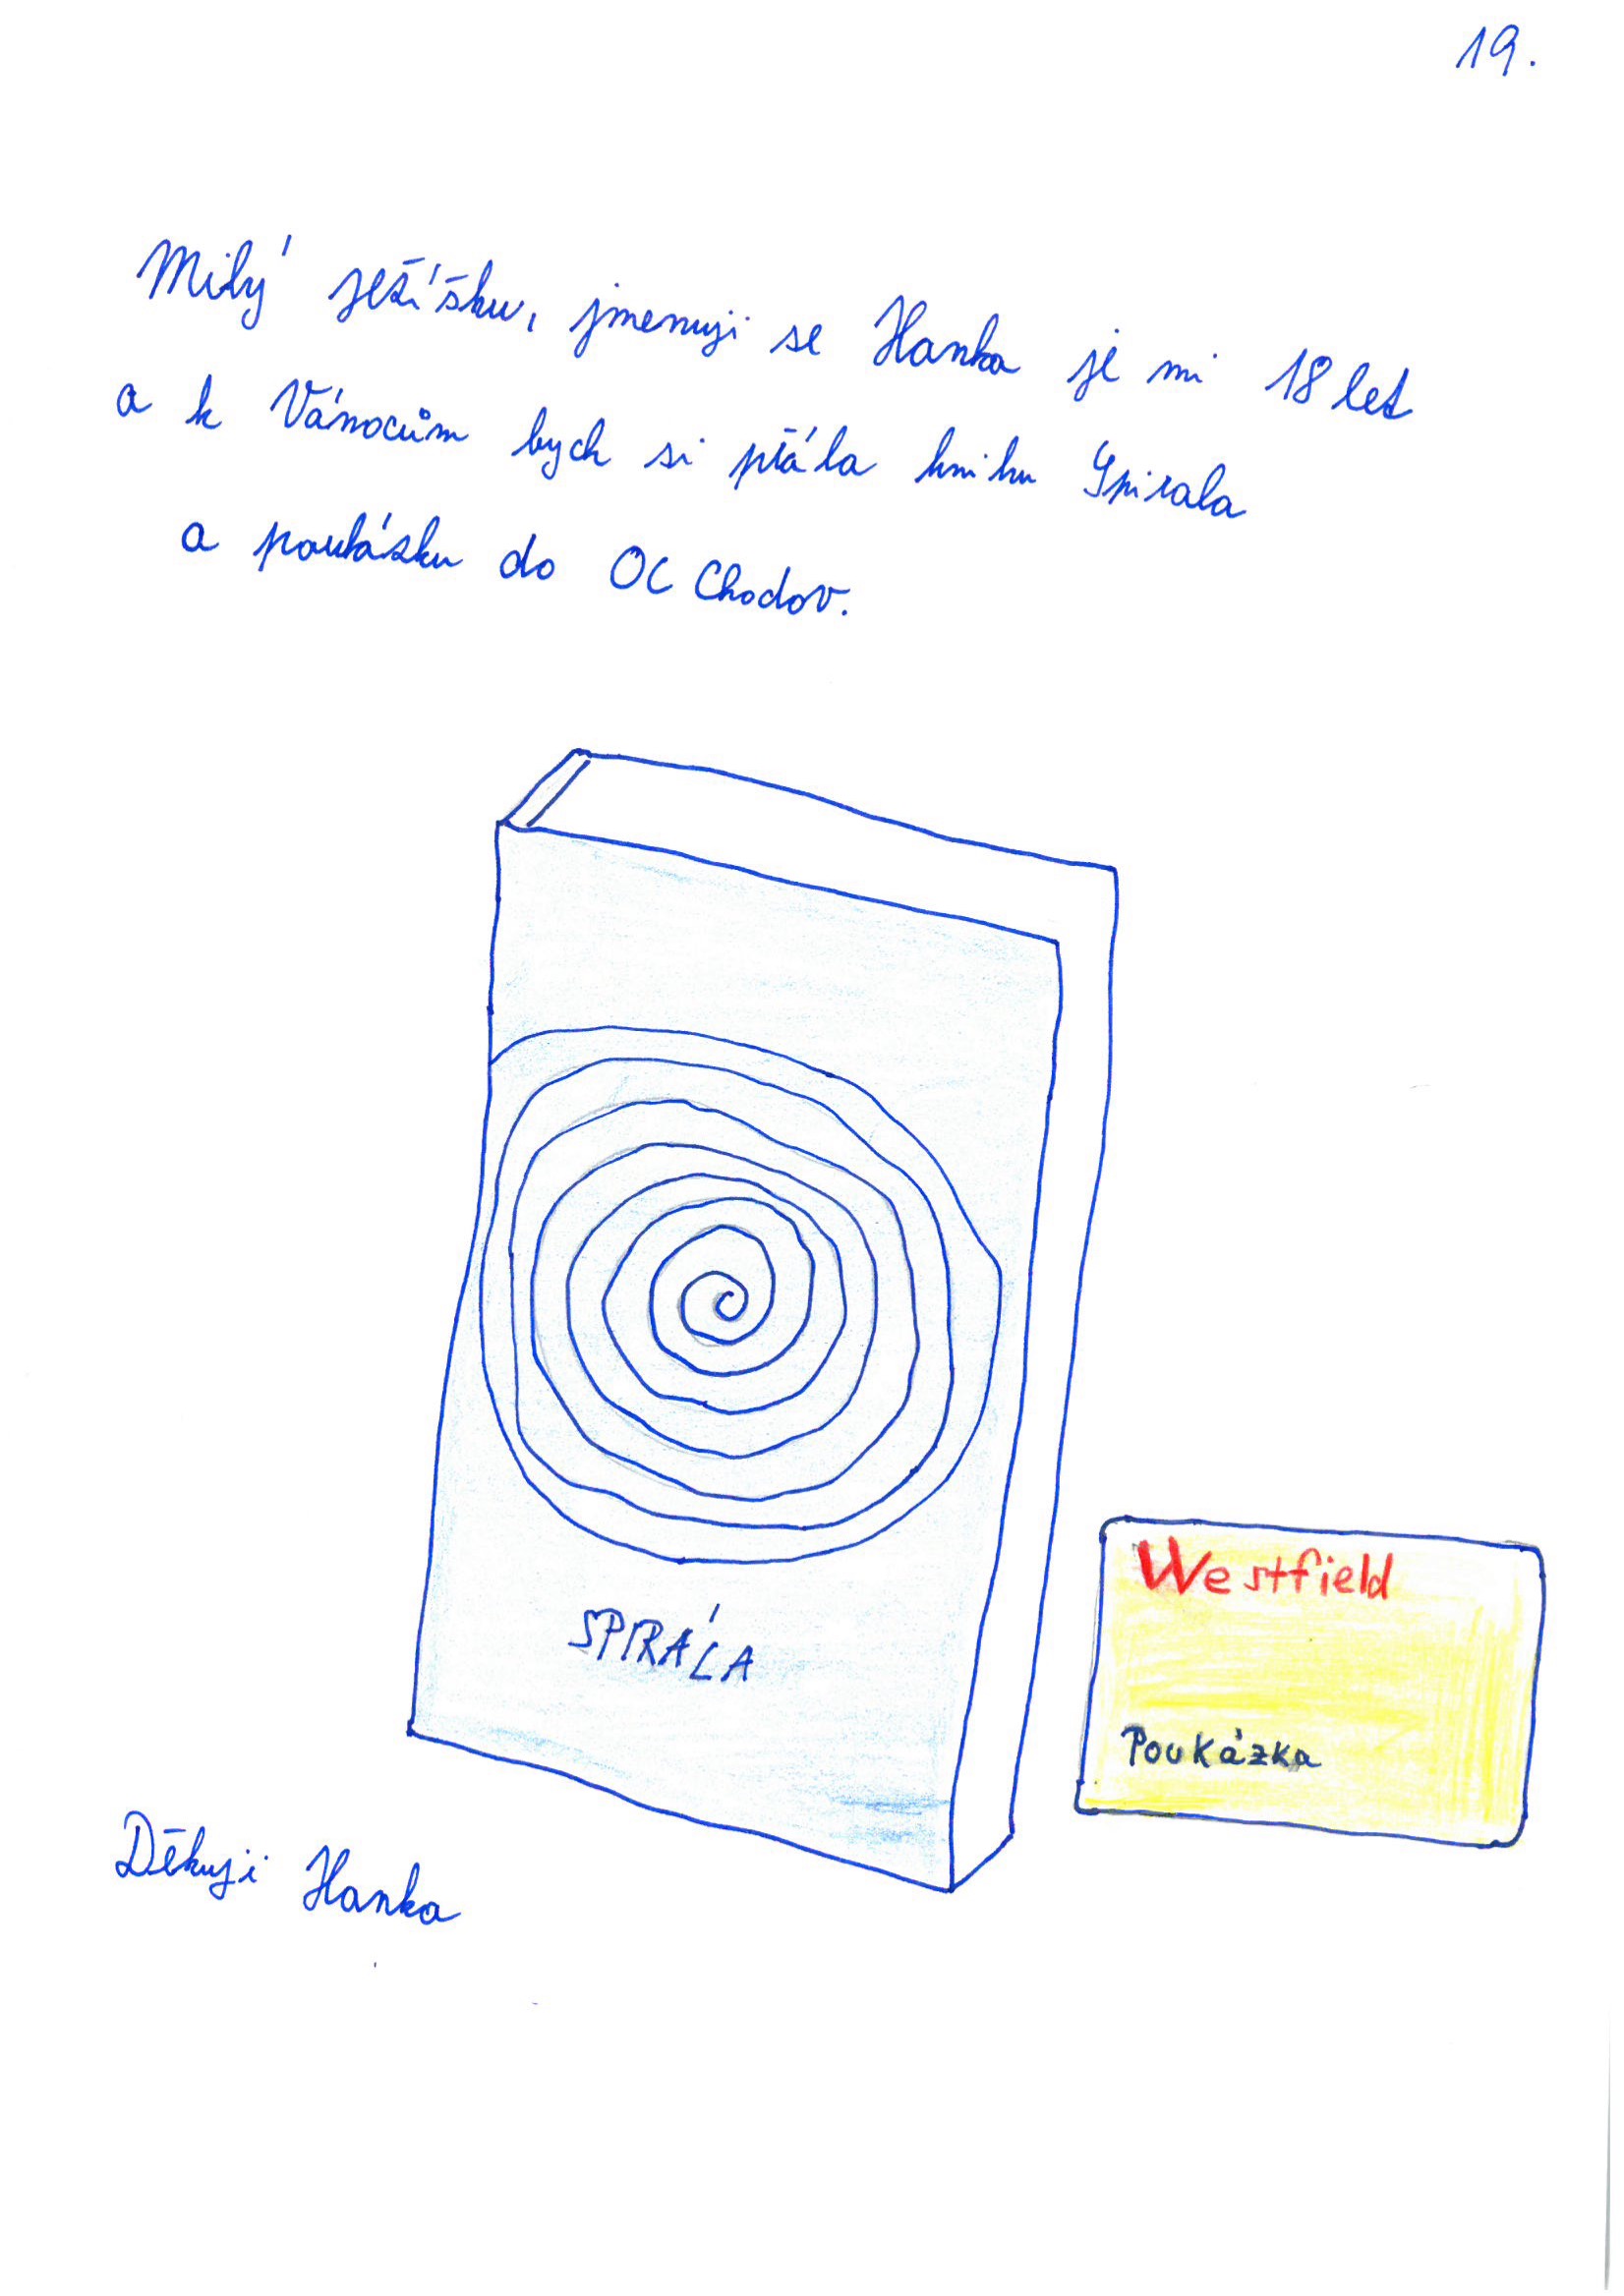 19.
Milý ježíšku, jmenuji se Hanka je mi 18 let
a k Vánocům bych si přála knihu Spirala
a poukázku do OC Chodov.
SPIRÁLA
Westfield
Poukázka
Děkuji Hanka